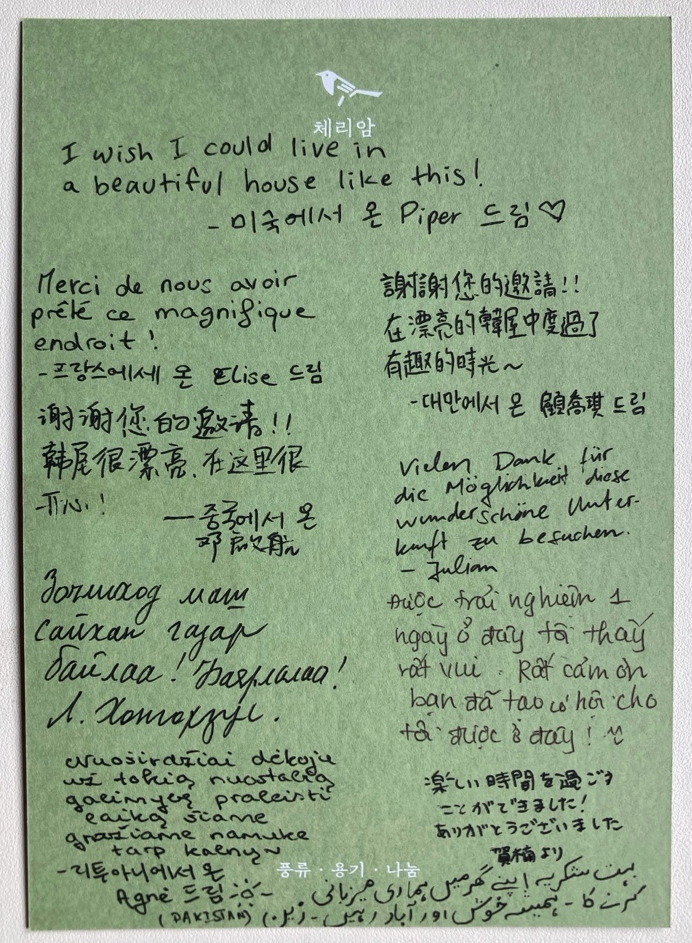 체리암
I wish I could live in
a beautiful house like this!
- 미국에서 온 Piper 드림♡
Merci de nous avoir
prêté ce magnifique
endroit !
- 프랑스에세 온 Elise 드림
謝謝您的邀請!!
在漂亮的韓屋中度過了
有趣的時光~
- 대만에서 온 顧喬琪 드림
谢谢您的邀请!!
韩屋很漂亮,在这里很
开心!
— 중국에서 온
邓启航
Vielen Dank für
die Möglichkeit diese
wunderschöne Unter-
kunft zu besuchen.
- Julian
Зочиход маш
сайхан газар
байлаа! Баярлалаа!
Л. Хонгорзул.
Được trải nghiệm 1
ngày ở đây tôi thấy
rất vui. Rất cảm ơn
bạn đã tạo cơ hội cho
tôi được ở đây!
nuoširdžiai dėkoju
už tokią nuostabią
galimybę praleisti
laiką šiame
gražiame namuke
tarp kalnų~
- 리투아니에서 온
Agnė 드림
楽しい時間を過ごす
ことができました!
ありがとうございました
賀楠より
풍류·용기·나눔
بہت شکریہ اپنے گھر میں ہماری میزبانی
کرنے کا - ہمیشہ خوش اور آباد رہیں -
(PAKISTAN)